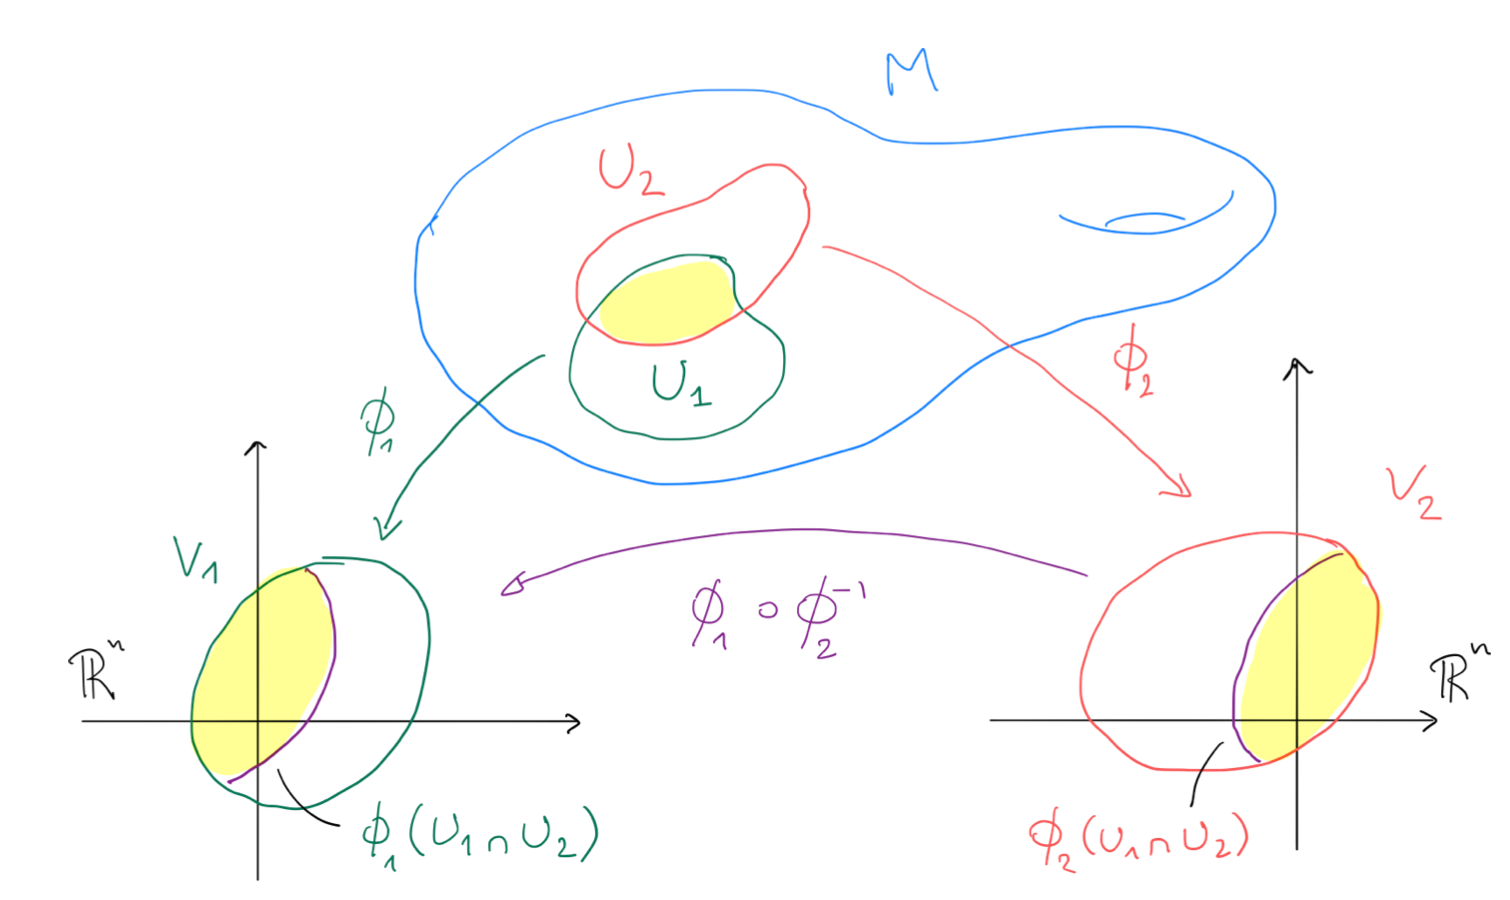 M
U₂
U₁
ϕ₁
ϕ₂
V₂
V₁
ϕ₁ ∘ ϕ₂⁻¹
ℝⁿ
ℝⁿ
ϕ₁(U₁∩U₂)
ϕ₂(U₁∩U₂)